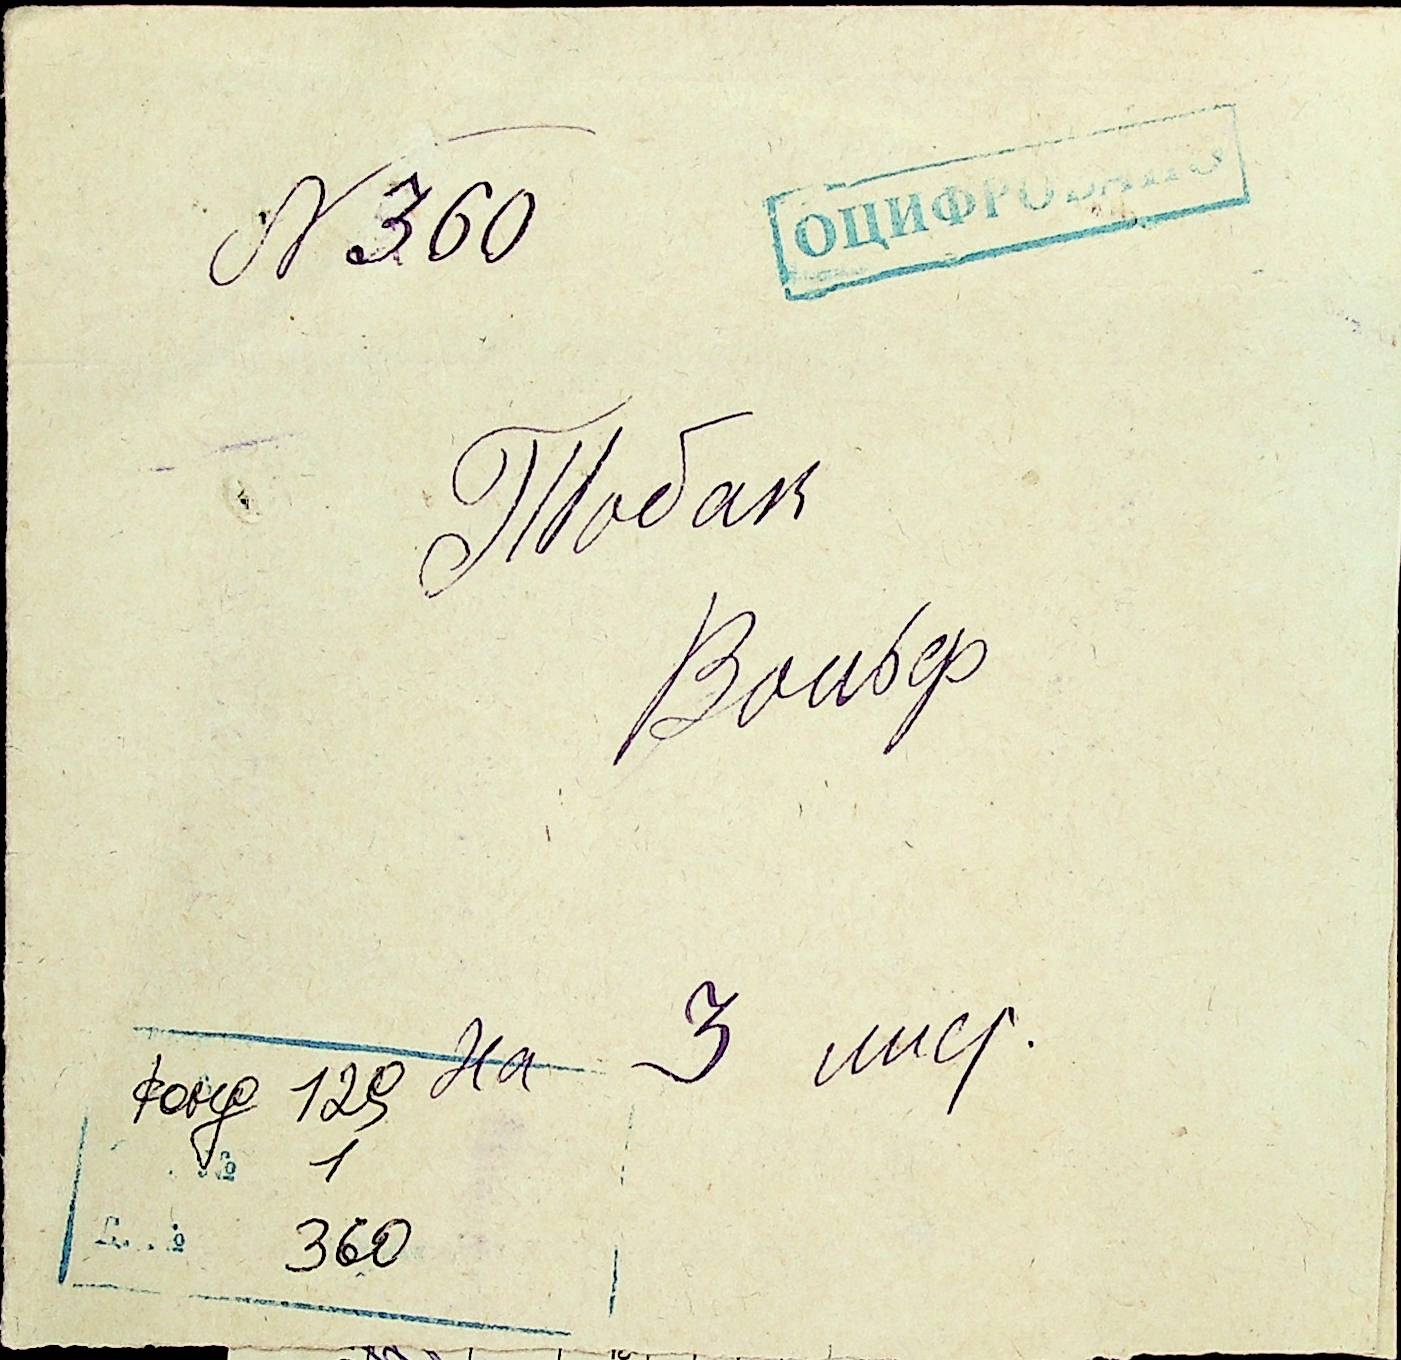 N 360
ОЦИФРОВАНО
Тобак
Вольф
На 3 лист.
Фонд 129
№ 1
360